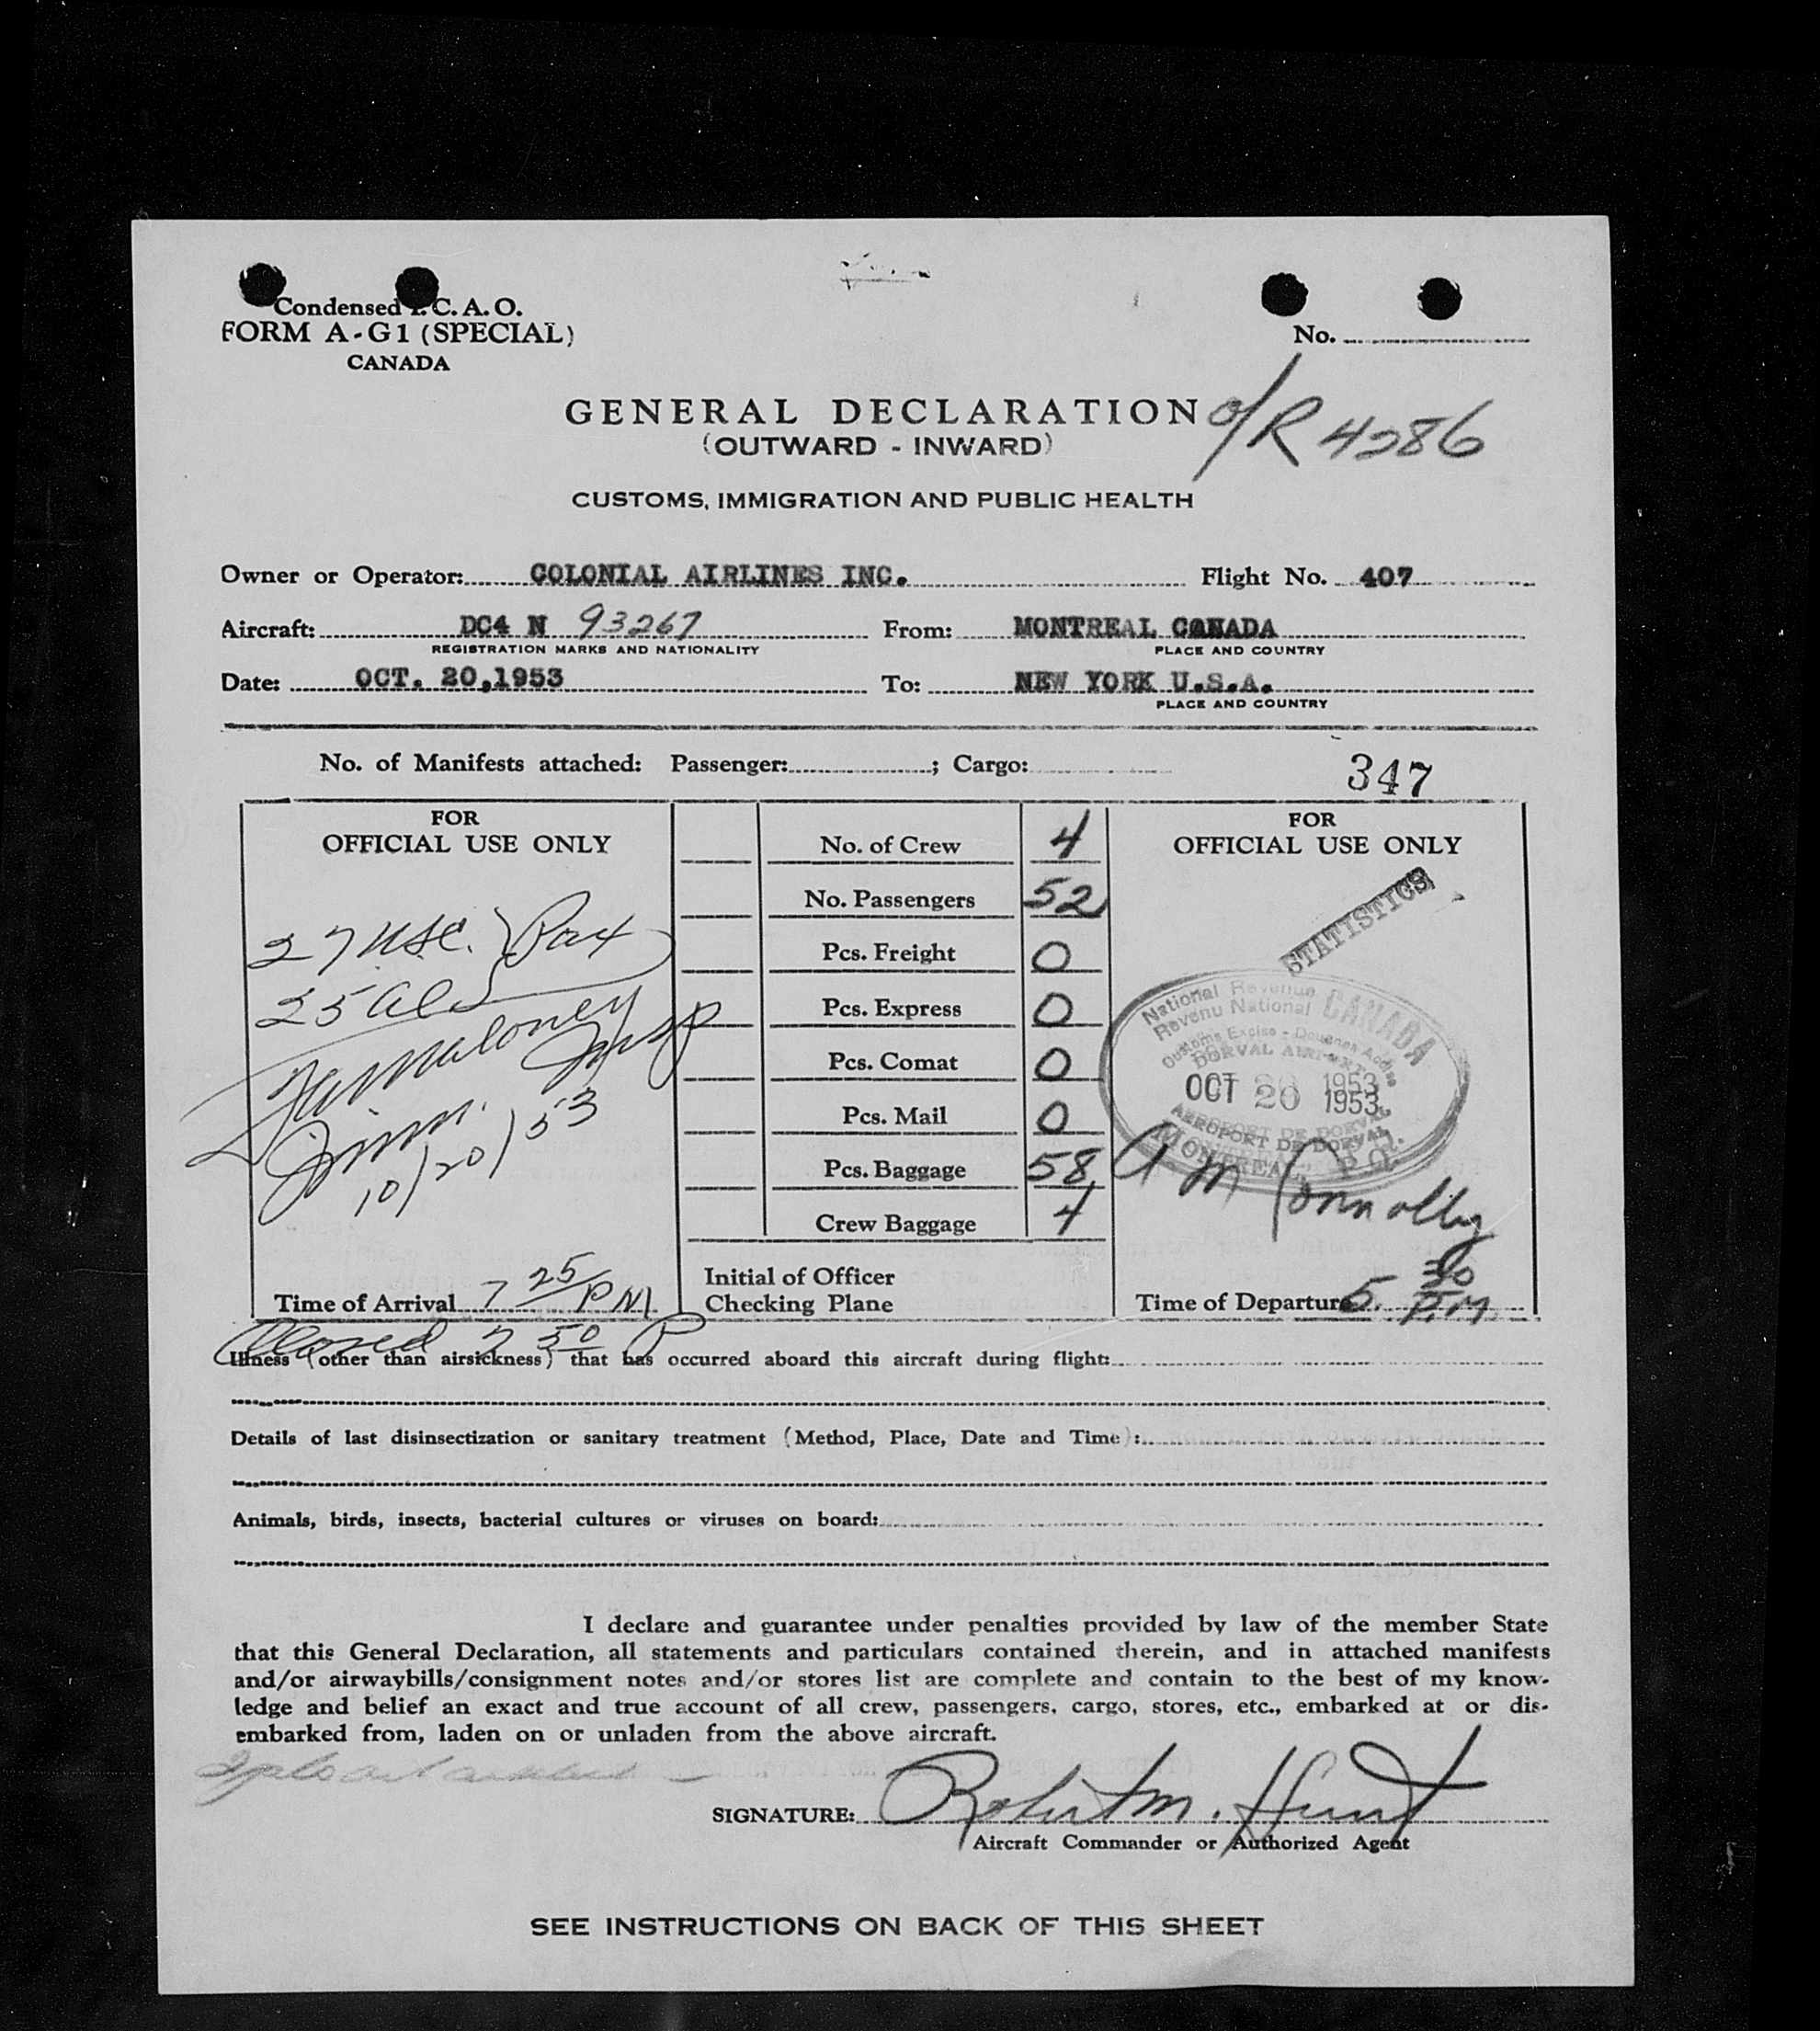 Condensed I.C.A.O.
FORM A-G1 (SPECIAL)
CANADA
No.
GENERAL DECLARATION
(OUTWARD - INWARD)
o/R 4286
CUSTOMS, IMMIGRATION AND PUBLIC HEALTH
Owner or Operator: COLONIAL AIRLINES INC. Flight No. 407
Aircraft: DC4 N 93267 From: MONTREAL CANADA
REGISTRATION MARKS AND NATIONALITY PLACE AND COUNTRY
Date: OCT. 20,1953 To: NEW YORK U.S.A.
PLACE AND COUNTRY
No. of Manifests attached: Passenger: ; Cargo:
347
FOR
OFFICIAL USE ONLY
27 USC. Pax
25 Al
Insp
Imm.
10/20/53
Time of Arrival 7 25/PM
No. of Crew 4
No. Passengers 52
Pcs. Freight 0
Pcs. Express 0
Pcs. Comat 0
Pcs. Mail 0
Pcs. Baggage 58
Crew Baggage 4
Initial of Officer
Checking Plane
FOR
OFFICIAL USE ONLY
STATISTICS
National Revenue
Revenu National
CANADA
Customs Excise - Douanes Accise
DORVAL AIRPORT
OCT 20 1953
OCT 20 1953
AEROPORT DE DORVAL
MONTREAL, P.Q.
A M Connolly
Time of Departure 5 30 P.M.
Closed 7 50 P
Illness (other than airsickness) that has occurred aboard this aircraft during flight:
Details of last disinsectization or sanitary treatment (Method, Place, Date and Time):
Animals, birds, insects, bacterial cultures or viruses on board:
I declare and guarantee under penalties provided by law of the member State
that this General Declaration, all statements and particulars contained therein, and in attached manifests
and/or airwaybills/consignment notes and/or stores list are complete and contain to the best of my know-
ledge and belief an exact and true account of all crew, passengers, cargo, stores, etc., embarked at or dis-
embarked from, laden on or unladen from the above aircraft.
SIGNATURE: Robert M. Hunt
Aircraft Commander or Authorized Agent
SEE INSTRUCTIONS ON BACK OF THIS SHEET